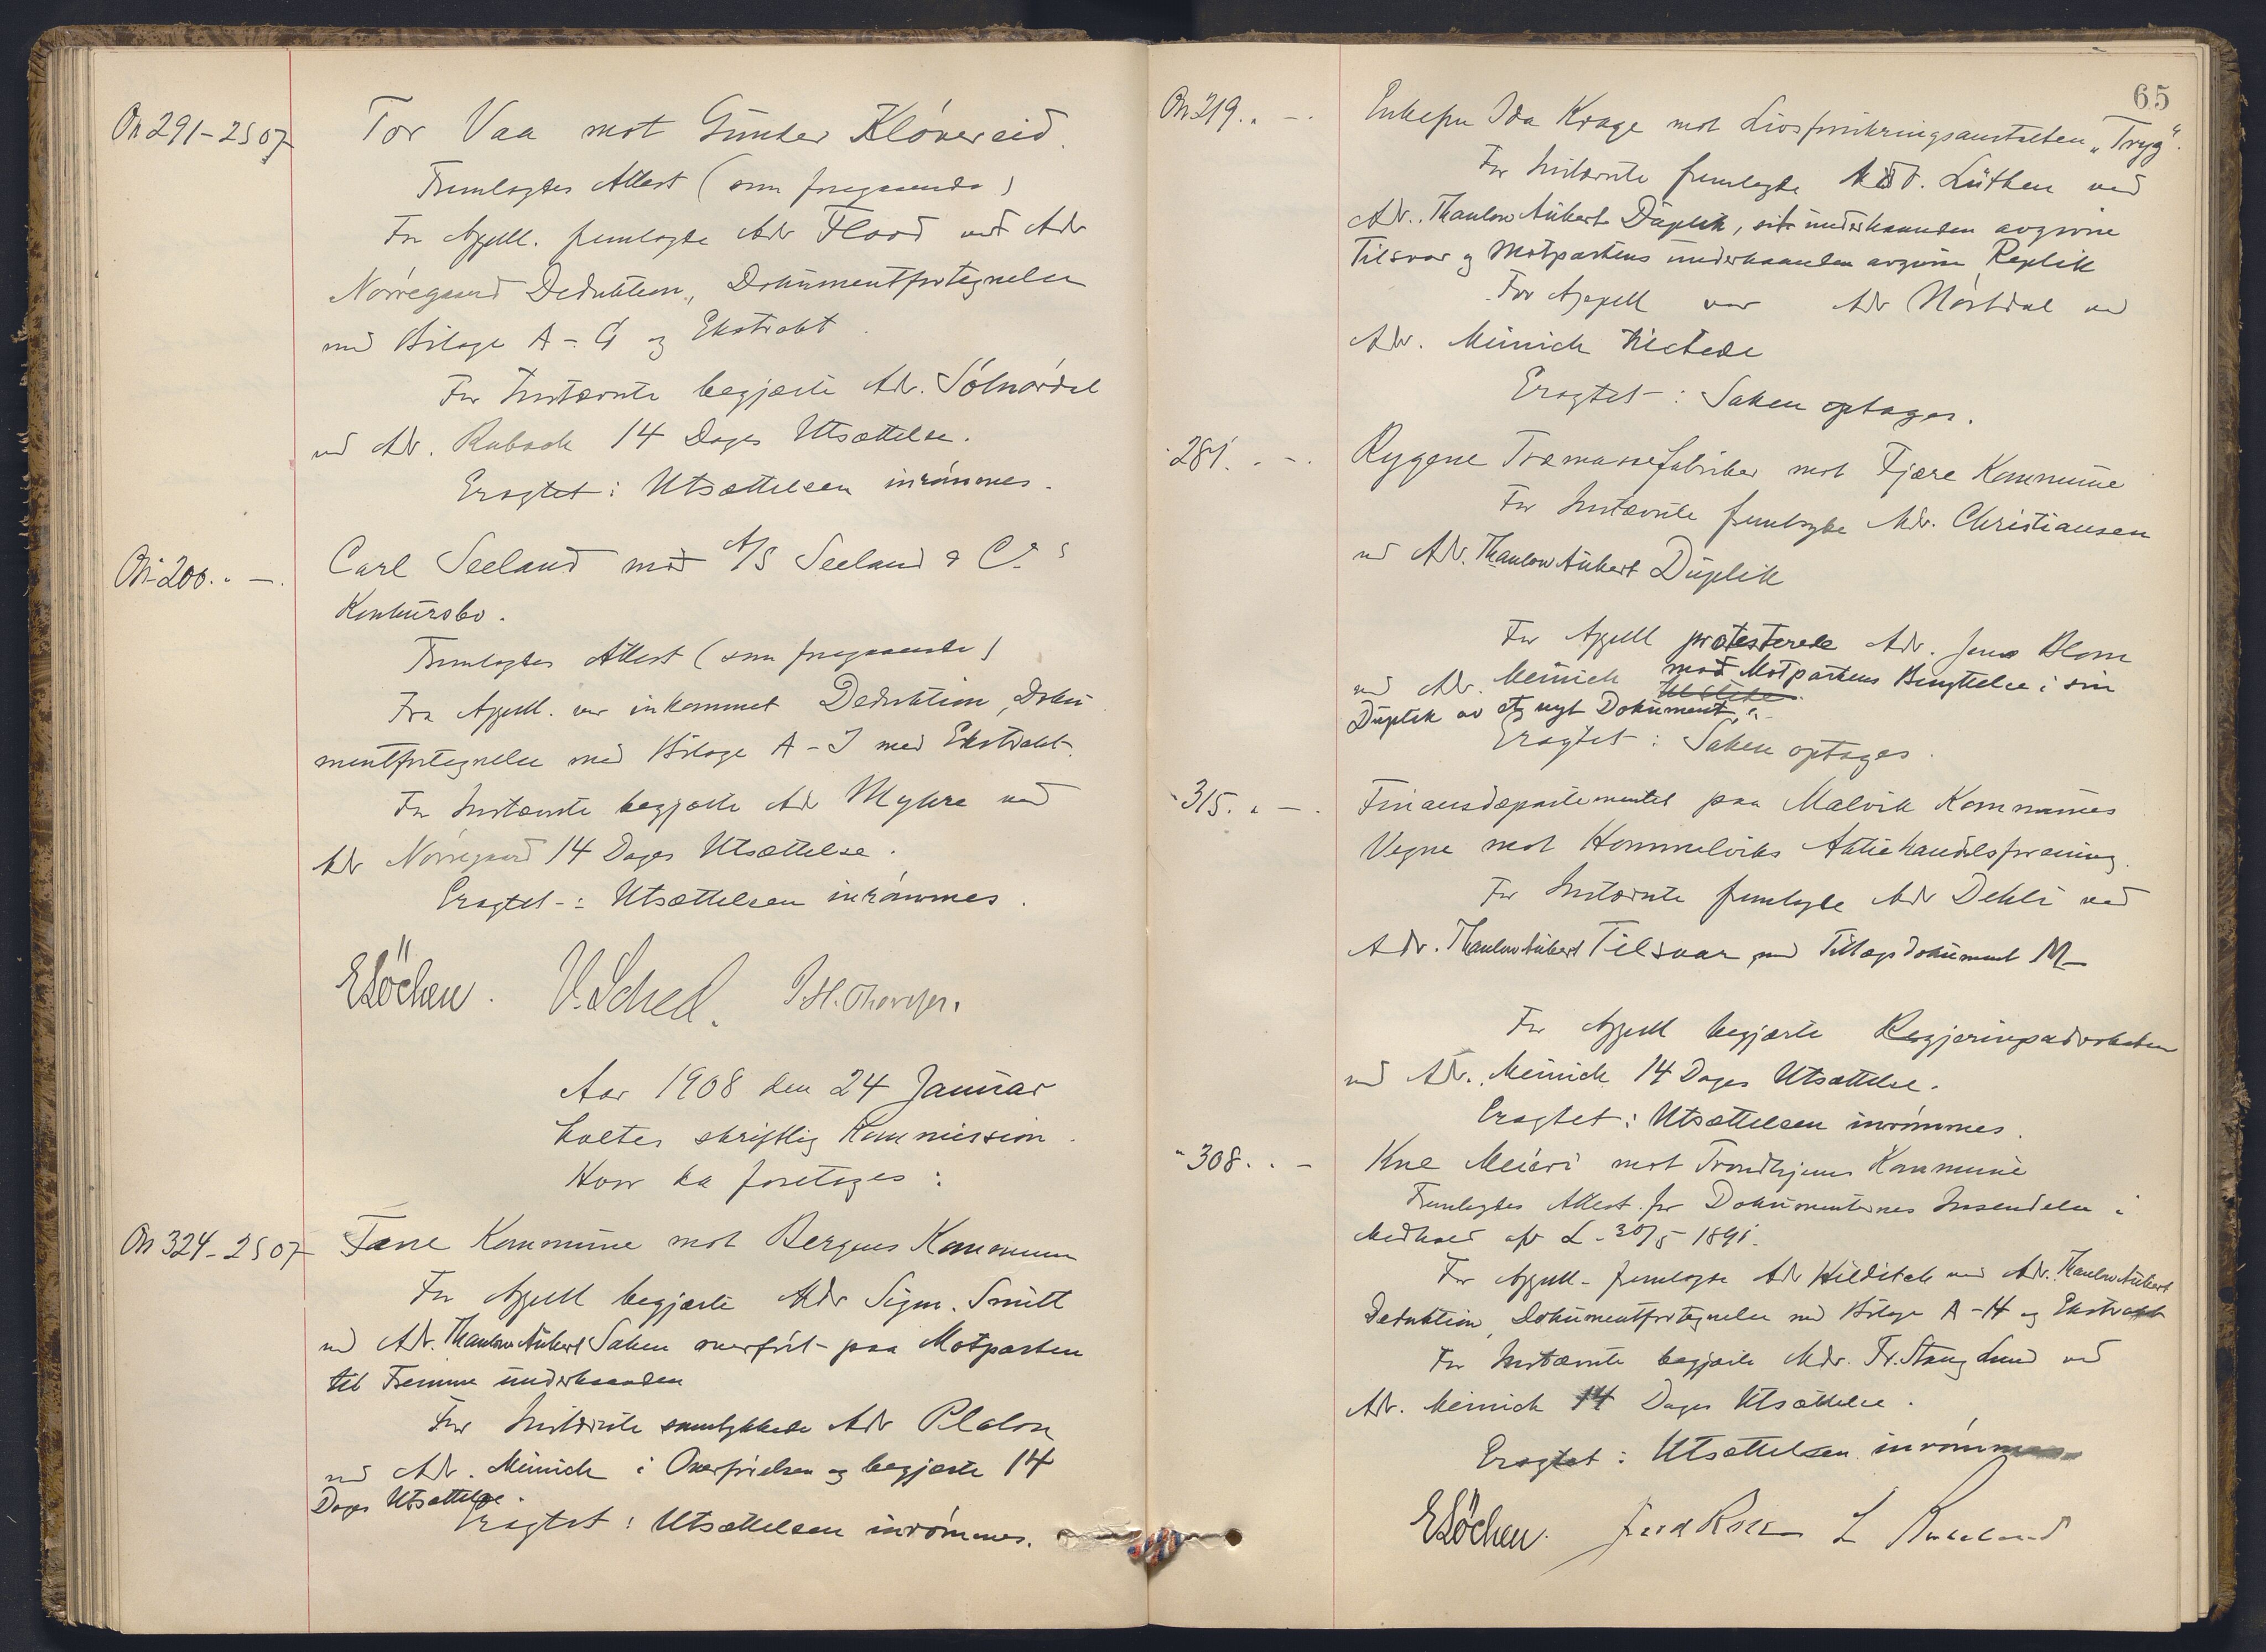 On 291 - 2 S 07
Tor Vaa mot Gunder Kløvereid.
Fremlagdes Attest (som foregaaende)
For Appell. fremlagde Adv Flood ved Adv
Nørregaard Deduktion, Dokumentfortegnelse
med Bilage A - G og Ekstrakt.
For Instævnte begjærte Adv. Sølnørdal
ved Adv. Rubach 14 Dages Utsættelse.
Eragtet: Utsættelsen inrømmes.
On 200. " —.
Carl Seeland mot A/S Seeland & Co s
Konkursbo.
Fremlagdes Attest (som foregaaende)
Fra Appell. var inkommet Deduktion, Doku-
mentfortegnelse med Bilage A - I med Ekstrakt.
For Instævnte begjærte Adv Myhre ved
Adv Nørregaard 14 Dages Utsættelse.
Eragtet: Utsættelsen inrømmes.
E Løchen. V. Scheel.
Aar 1908 den 24 Januar
holdtes skriftlig Kommission.
Hvor da foretoges:
On 324 - 2 S 07
Fane Kommune mot Bergens Kommune
For Appell begjærte Adv Sigm. Smitt
ved Adv. Thaulow Aubert Saken overført paa Motparten
til Fremme underhaanden
For Instævnte samtykkede Adv Platou
ved Adv. Meinich i Overførelsen og begjærte 14
Dages Utsættelse.
Eragtet: Utsættelsen inrømmes.
65
On 219. " —.
Enkefru Ida Krage mot Livsforsikringsanstalten "Tryg".
For Instævnte fremlagde Adv. Lüthen ved
Adv. Thaulow Aubert Duplik, sit underhaanden avgivne
Tilsvar og Motpartens underhaanden avgivne Replik
For Appell var Adv Mørkdal ved
Adv. Meinich tilstede
Eragtet: Saken optages.
" 281. " —.
Rygene Træmassefabriker mot Fjære Kommune
For Instævnte fremlagde Adv. Christiansen
ved Adv. Thaulow Aubert Duplik
For Appell protesterede Adv. Jens Blom
ved Adv. Meinich mod Motpartens Benyttelse i sin
Duplik av et nyt Dokument.
Eragtet: Saken optages.
" 315. " —.
Finansdepartementet paa Malvik Kommunes
Vegne mot Hommelviks Aktiehandelsforening.
For Instævnte fremlagde Adv Dehli ved
Adv. Thaulow Aubert Tilsvar med Tillægsdokument M—
For Appell begjærte Regjeringsadvokaten
ved Adv. Meinich 14 Dages Utsættelse.
Eragtet: Utsættelsen inrømmes.
" 308. " —
Kne Meieri mot Trondhjems Kommune
Fremlagdes Attest for Dokumenternes Indsendelse i
Medhold af L. 30/5 1891.
For Appell. fremlagde Adv Hilditch ved Adv. Thaulow Aubert
Deduktion, Dokumentfortegnelse med Bilage A - H og Ekstrakt
For Instævnte begjærte Adv. Fr. Stang Lund ved
Adv. Meinich 14 Dages Utsættelse.
Eragtet: Utsættelsen inrømmes
E Løchen.